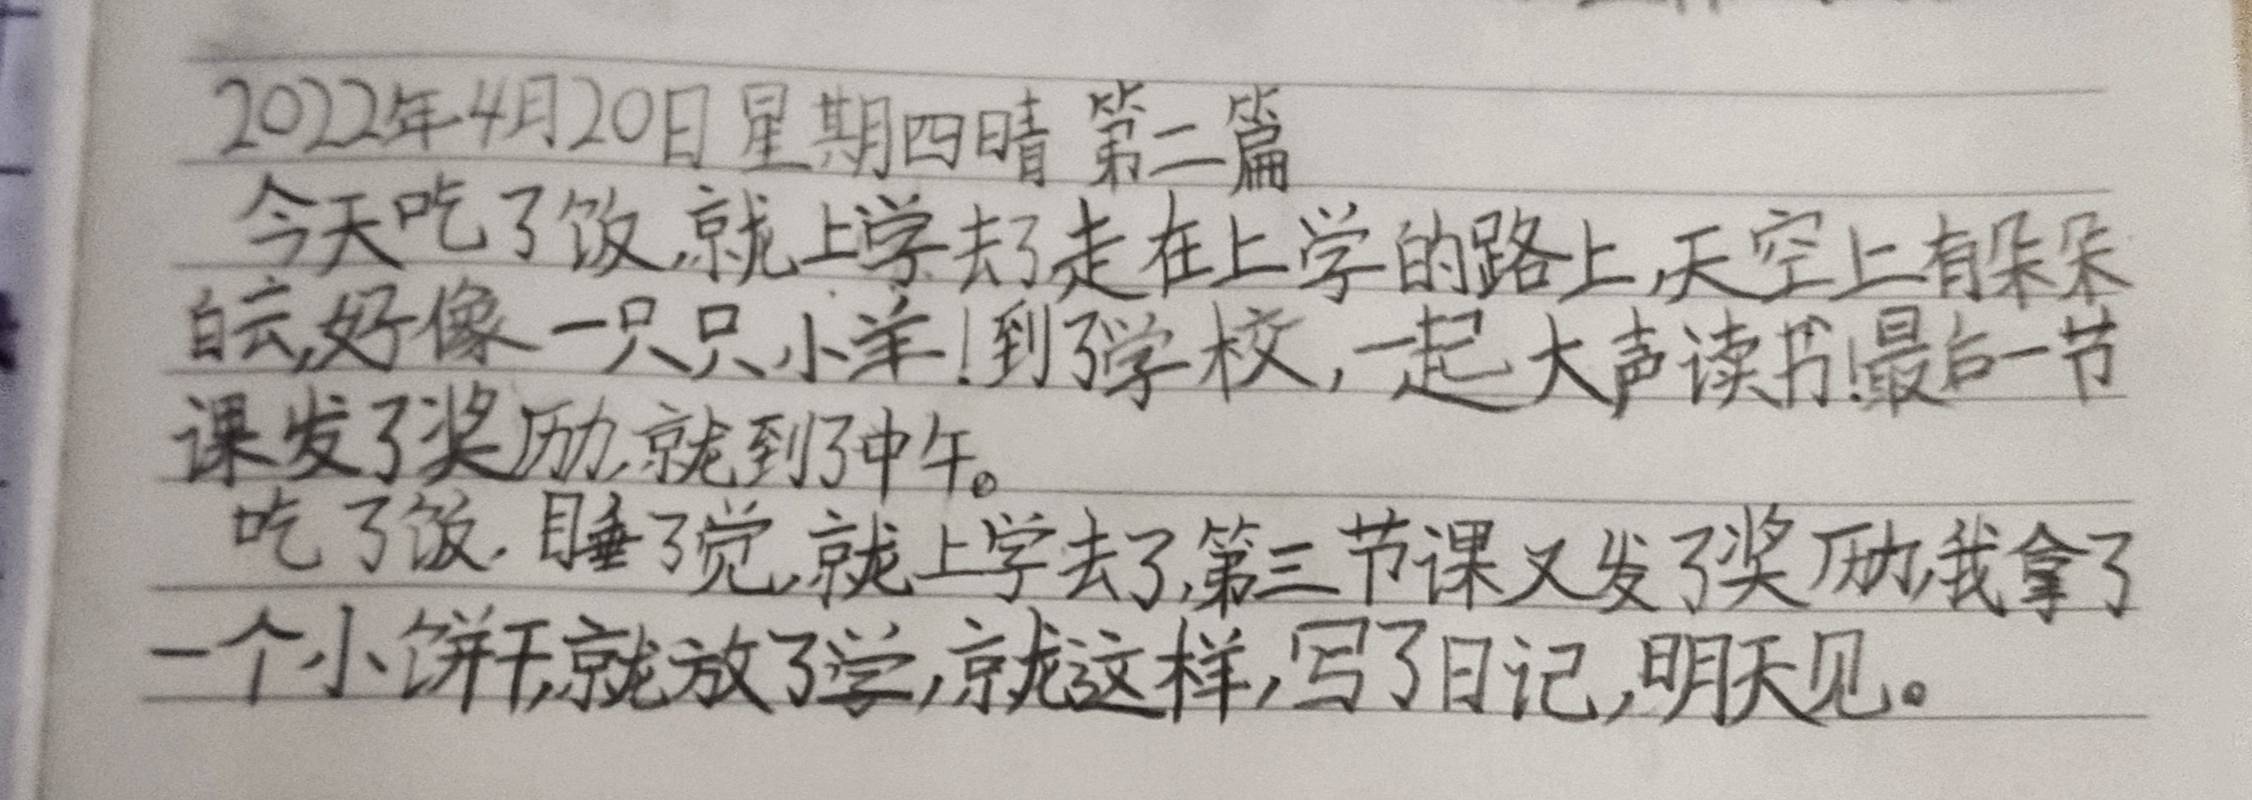 2022年4月20日星期四晴 第二篇
今天吃了饭,就上学去了走在上学的路上,天空上有朵朵
白云,好像一只只小羊!到了学校,一起大声读书!最后一节
课发了奖励,就到了中午。
吃了饭.睡了觉,就上学去了,第三节课又发了奖励,我拿了
一个小饼干,就放了学,就这样,写了日记,明天见。